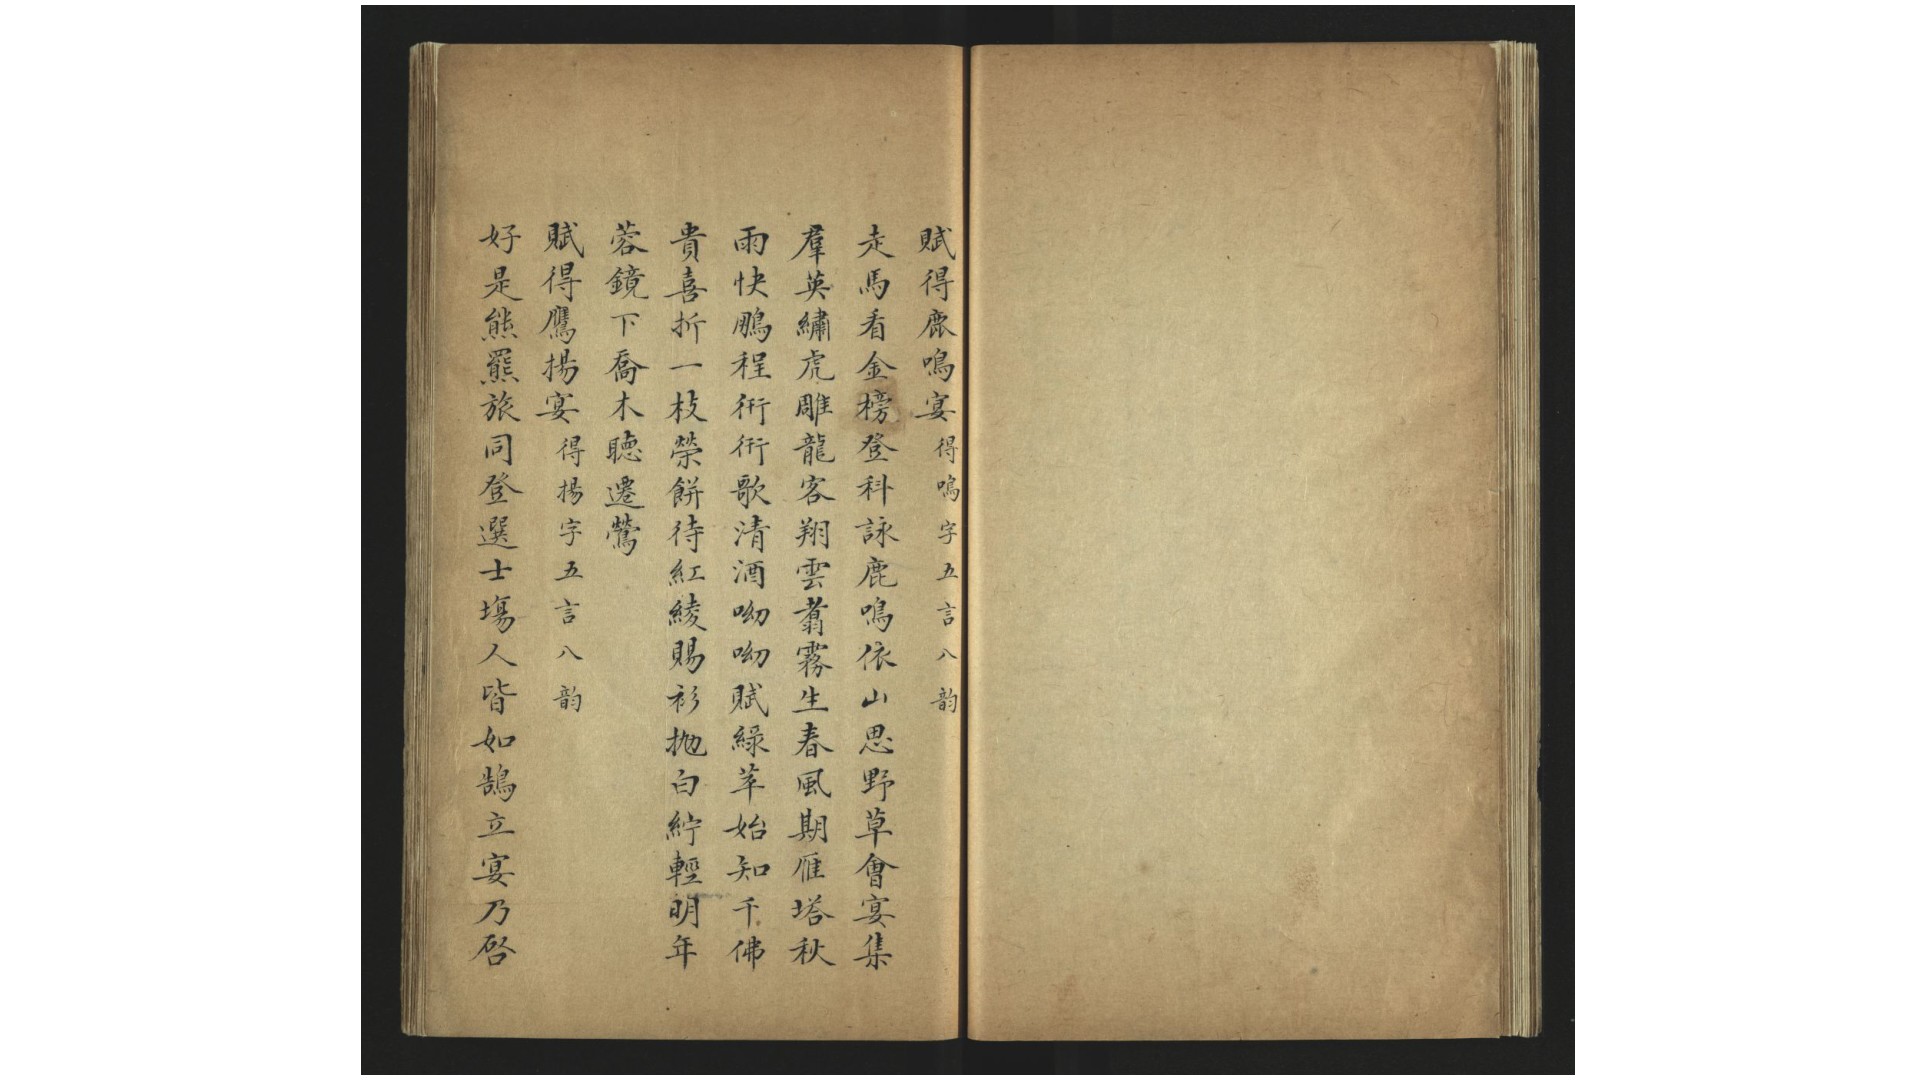 賦得鹿鳴宴得鳴字五言八韵
走馬看金榜登科詠鹿鳴依山思野草會宴集
羣英繡虎雕龍客翔雲翥霧生春風期雁塔秋
雨快鵬程衎衎歌清酒呦呦賦綠苹始知千佛
貴喜折一枝榮餅待紅綾賜衫拋白紵輕明年
蓉鏡下喬木聽遷鶯
賦得鷹揚宴得揚字五言八韵
好是熊羆旅同登選士塲人皆如鵠立宴乃啓